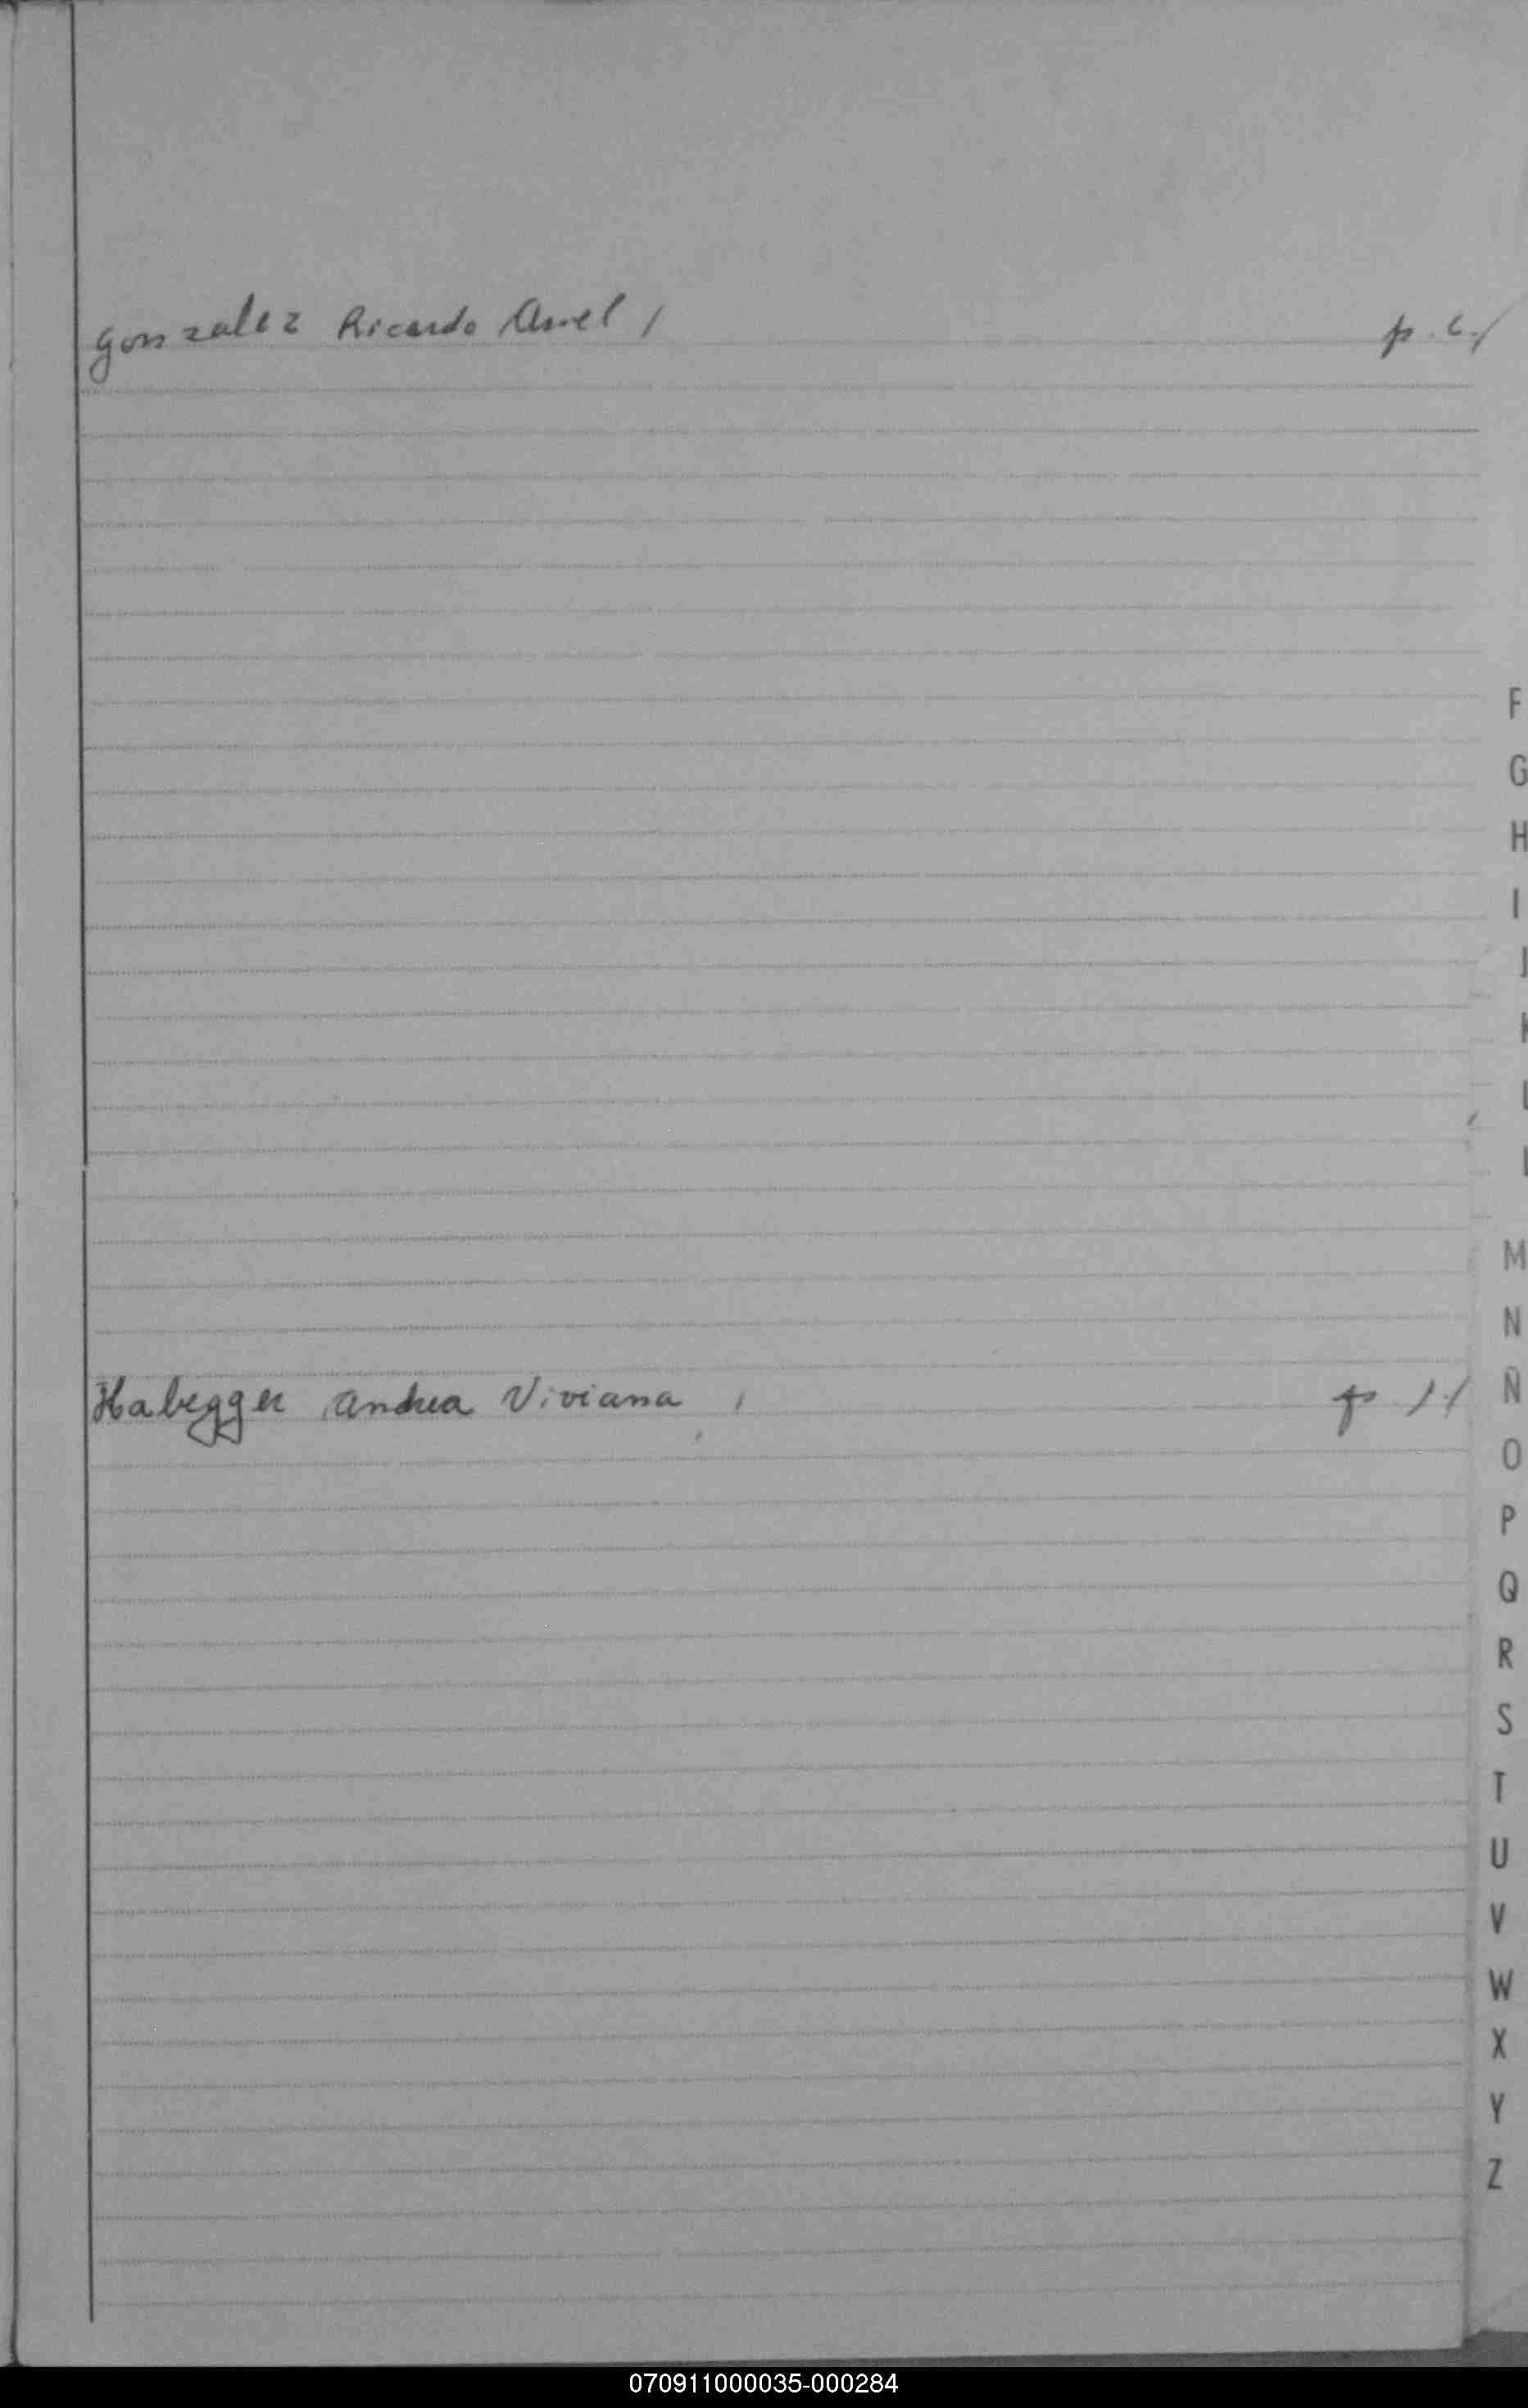 Gonzalez Ricardo /
p.
F
G
H
I
J
K
L
M
N
Habegger Andrea Viviana /
p 1./
Ñ
O
P
Q
R
S
T
U
V
W
X
Y
Z
070911000035-000284